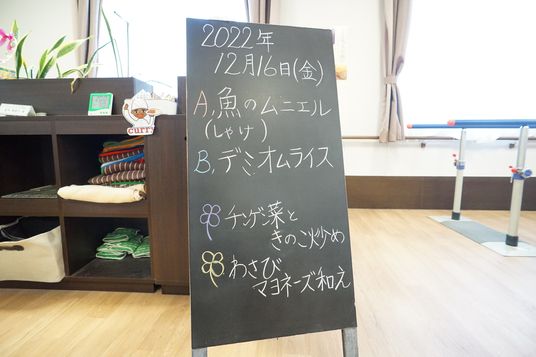 2022年
12月16日(金)
A.魚のムニエル
(しゃけ)
B.デミオムライス
チンゲン菜と
きのこ炒め
わさび
マヨネーズ和え
curry